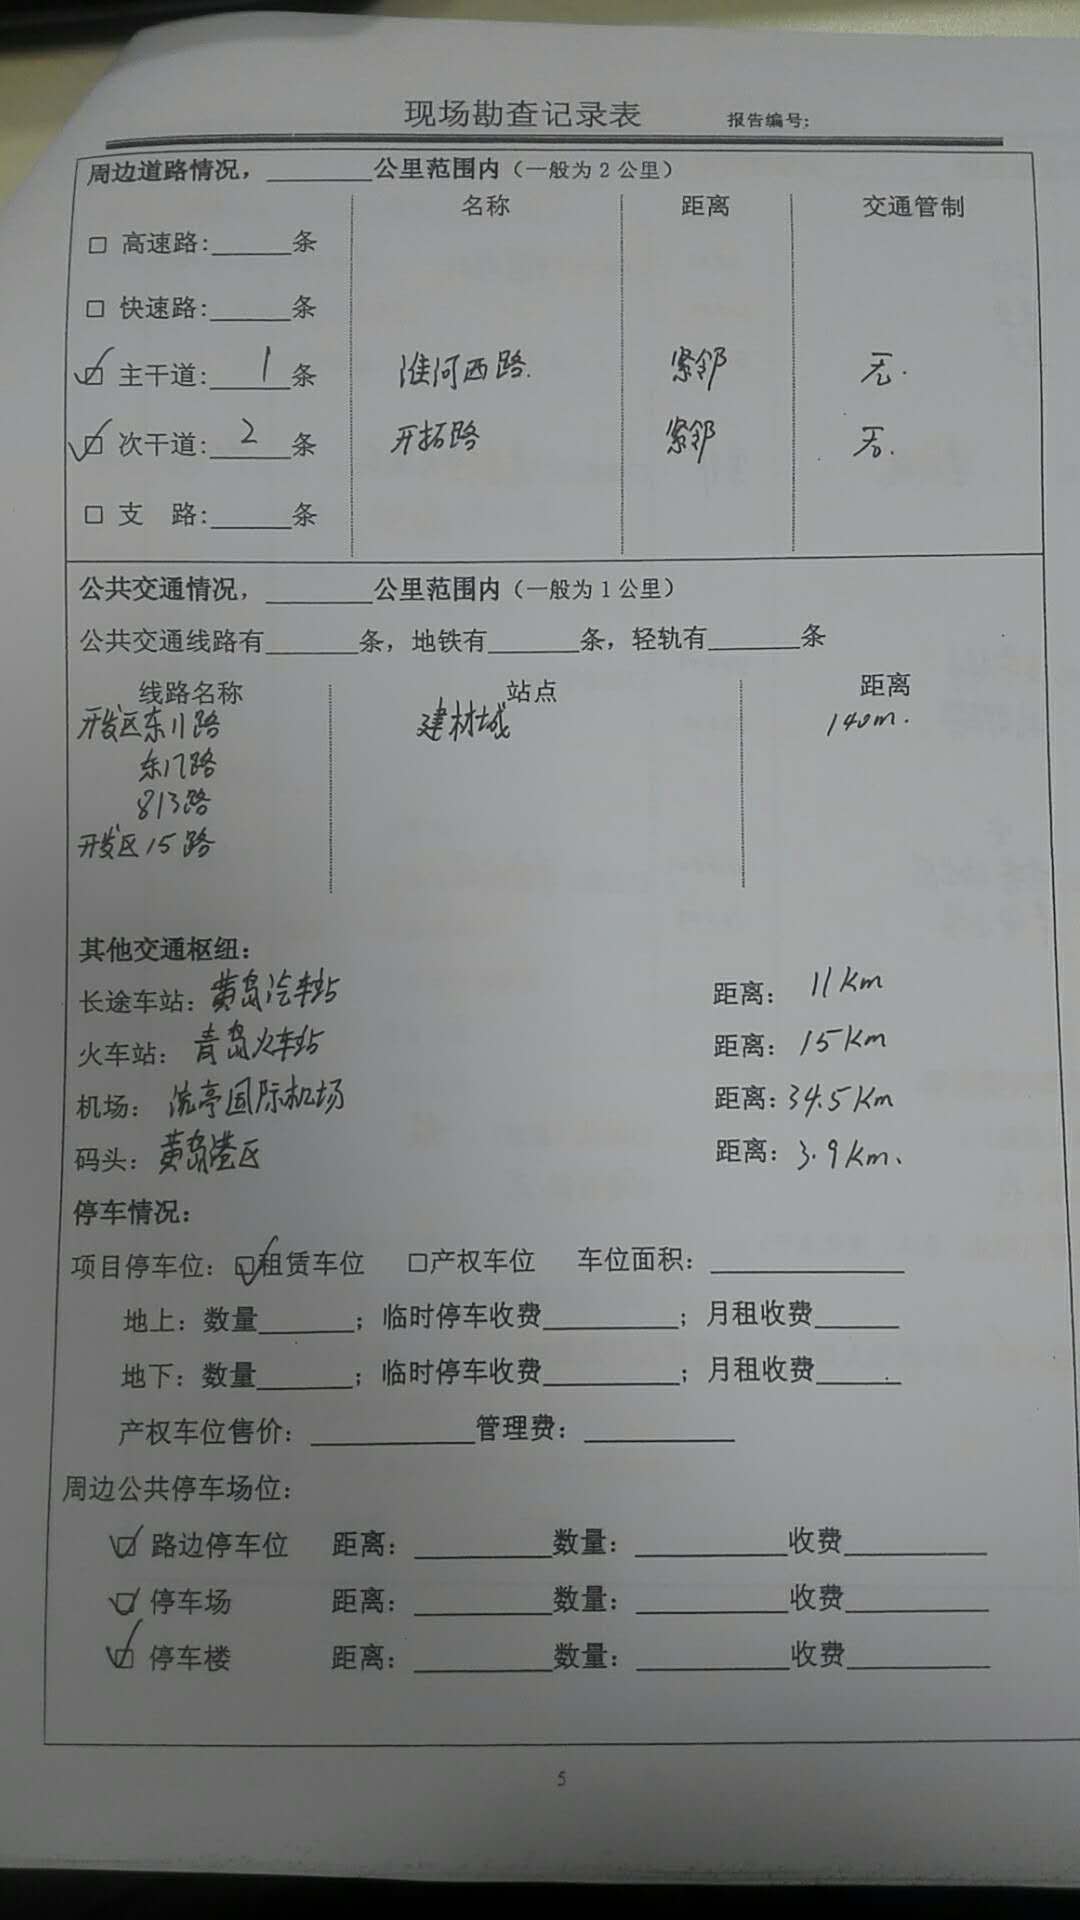 现场勘查记录表 报告编号:
周边道路情况，________公里范围内（一般为2公里）
名称 距离 交通管制
□ 高速路:______条
□ 快速路:______条
☑ 主干道: 1 条 淮河西路. 紧邻 无.
☑ 次干道: 2 条 开拓路 紧邻 无.
□ 支 路:______条
公共交通情况，________公里范围内（一般为1公里）
公共交通线路有_______条，地铁有_______条，轻轨有_______条
线路名称 站点 距离
开发区东11路 建材城 140m.
东17路
813路
开发区15路
其他交通枢纽:
长途车站: 黄岛汽车站 距离: 11Km
火车站: 青岛火车站 距离: 15Km
机场: 流亭国际机场 距离: 34.5Km
码头: 黄岛港区 距离: 3.9Km.
停车情况:
项目停车位: ☑租赁车位 □产权车位 车位面积:______________
地上: 数量_______; 临时停车收费__________; 月租收费______
地下: 数量_______; 临时停车收费__________; 月租收费______
产权车位售价: ____________管理费: ___________
周边公共停车场位:
☑ 路边停车位 距离: __________数量: ___________收费__________
☑ 停车场 距离: __________数量: ___________收费__________
☑ 停车楼 距离: __________数量: ___________收费__________
5